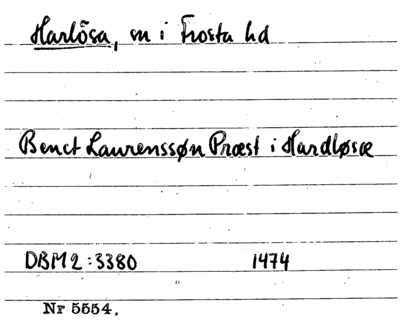 Harlösa, sn i Frosta hd
Benct Laurenssøn Præst i Hardløsæ
DBM 2:3380 1474
Nr 5554.